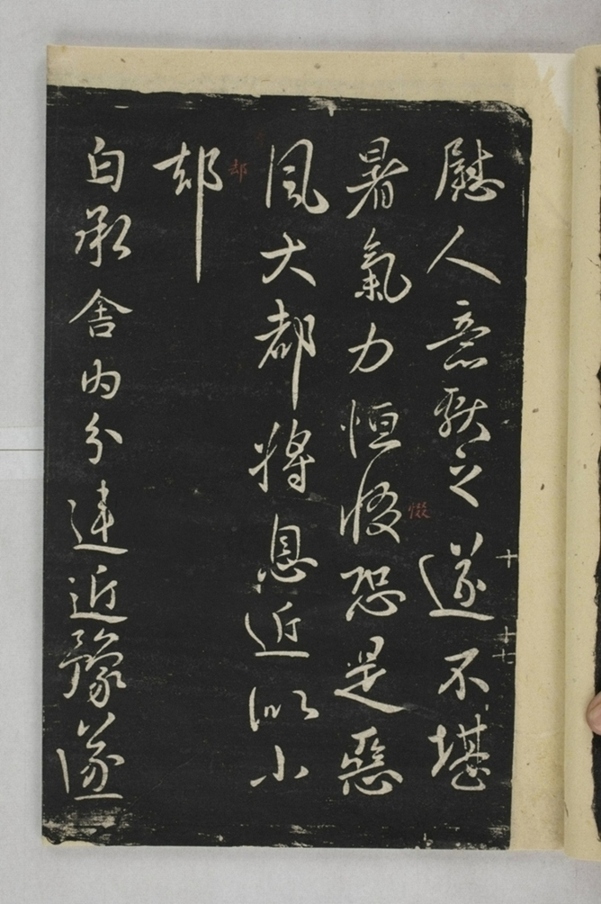 慰人意獻之遂不堪
暑氣力恒惙恐是惡
惙
風大都將息近似小
却
却
白承舍内分違近豫遂